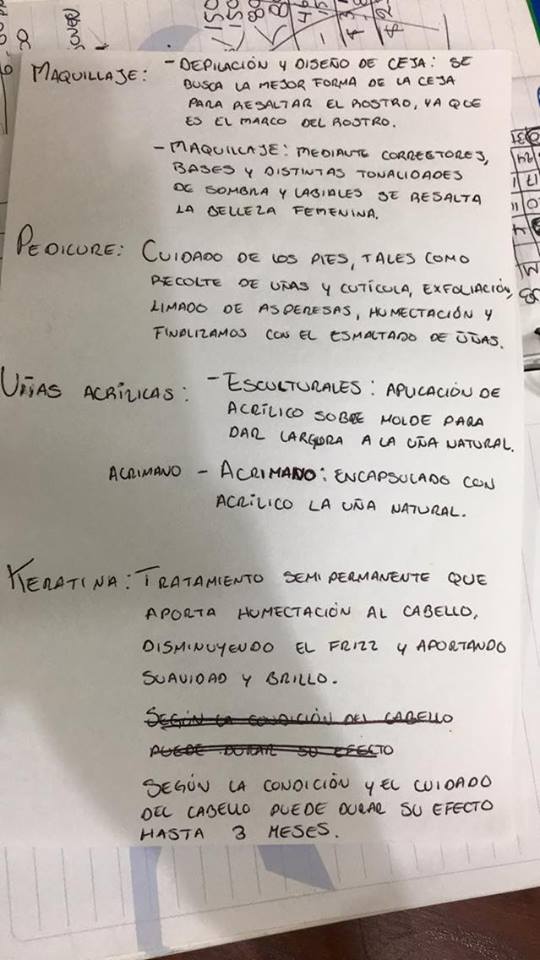 MAQUILLAJE: - DEPILACIÓN Y DISEÑO DE CEJA: SE
BUSCA LA MEJOR FORMA DE LA CEJA
PARA RESALTAR EL ROSTRO, YA QUE
ES EL MARCO DEL ROSTRO.
- MAQUILLAJE: MEDIANTE CORRECTORES,
BASES Y DISTINTAS TONALIDADES
DE SOMBRA Y LABIALES SE RESALTA
LA BELLEZA FEMENINA.
PEDICURE: CUIDADO DE LOS PIES, TALES COMO
RECOLTE DE UÑAS Y CUTÍCULA, EXFOLIACIÓN,
LIMADO DE ASPERESAS, HUMECTACIÓN Y
FINALIZAMOS CON EL ESMALTADO DE UÑAS.
UÑAS ACRÍLICAS: - ESCULTURALES: APLICACIÓN DE
ACRÍLICO SOBRE MOLDE PARA
DAR LARGORA A LA UÑA NATURAL.
ACRIMANO - ACRIMANO: ENCAPSULADO CON
ACRÍLICO LA UÑA NATURAL.
KERATINA: TRATAMIENTO SEMIPERMANENTE QUE
APORTA HUMECTACIÓN AL CABELLO,
DISMINUYENDO EL FRIZZ Y APORTANDO
SUAVIDAD Y BRILLO.
SEGÚN LA CONDICIÓN DEL CABELLO
PUEDE DURAR SU EFECTO
SEGÚN LA CONDICIÓN Y EL CUIDADO
DEL CABELLO PUEDE DURAR SU EFECTO
HASTA 3 MESES.